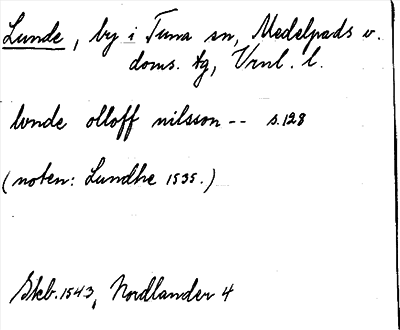 Lunde, by i Tuna sn, Medelpads v.
doms. tg, Vrnl. l.
lvnde olloff nilsson -- s.128
(noten: Lundhe 1535.)
Skb. 1543, Nordlander 4